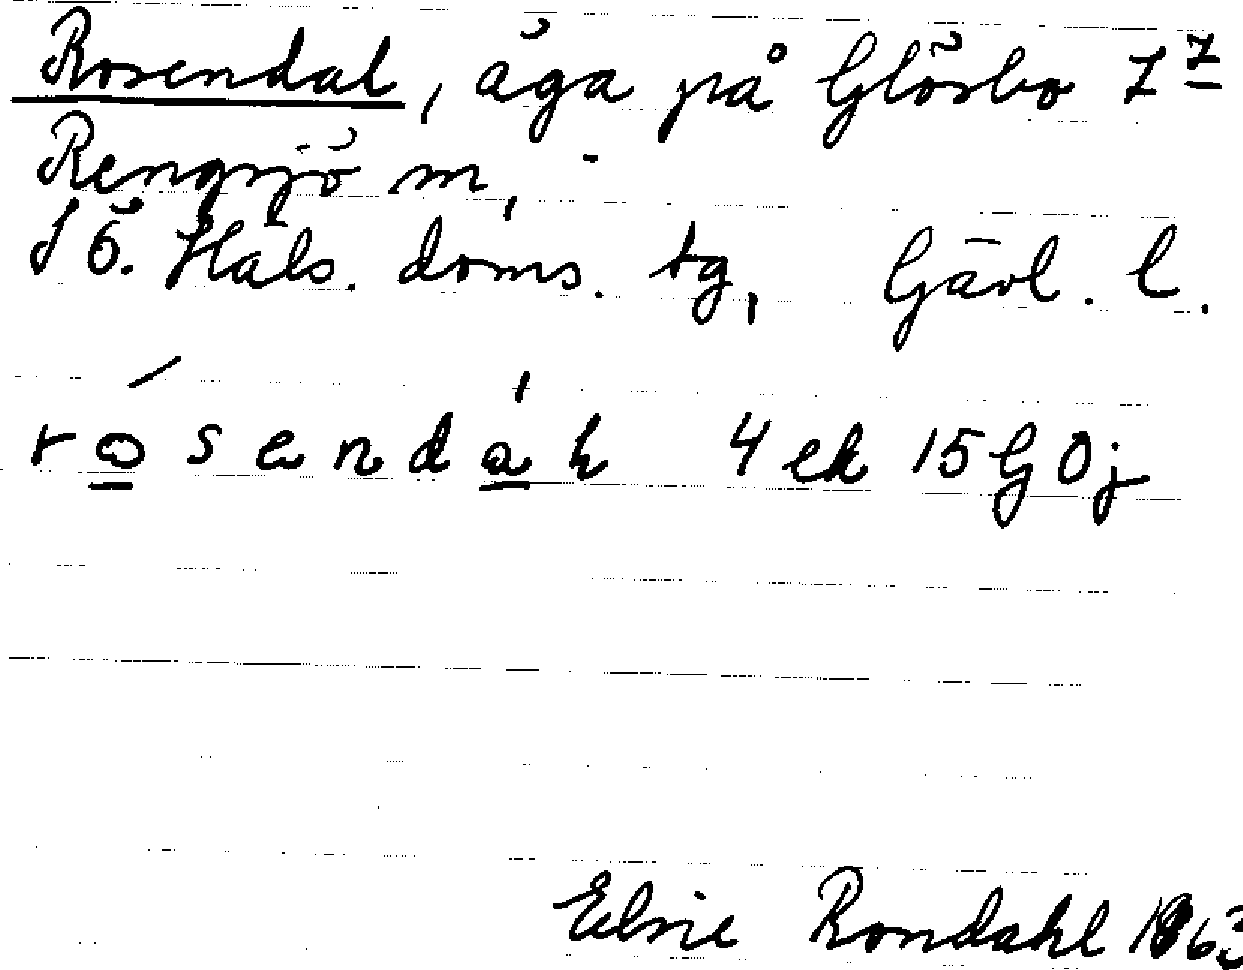 Rosendal, äga på Glösbo 7⁷
Rengsjö sn,
S ö. Häls. doms. tg, Gävl. l.
rosendáh 4 ek 15 G 0 j
Elsie Rondahl 1963